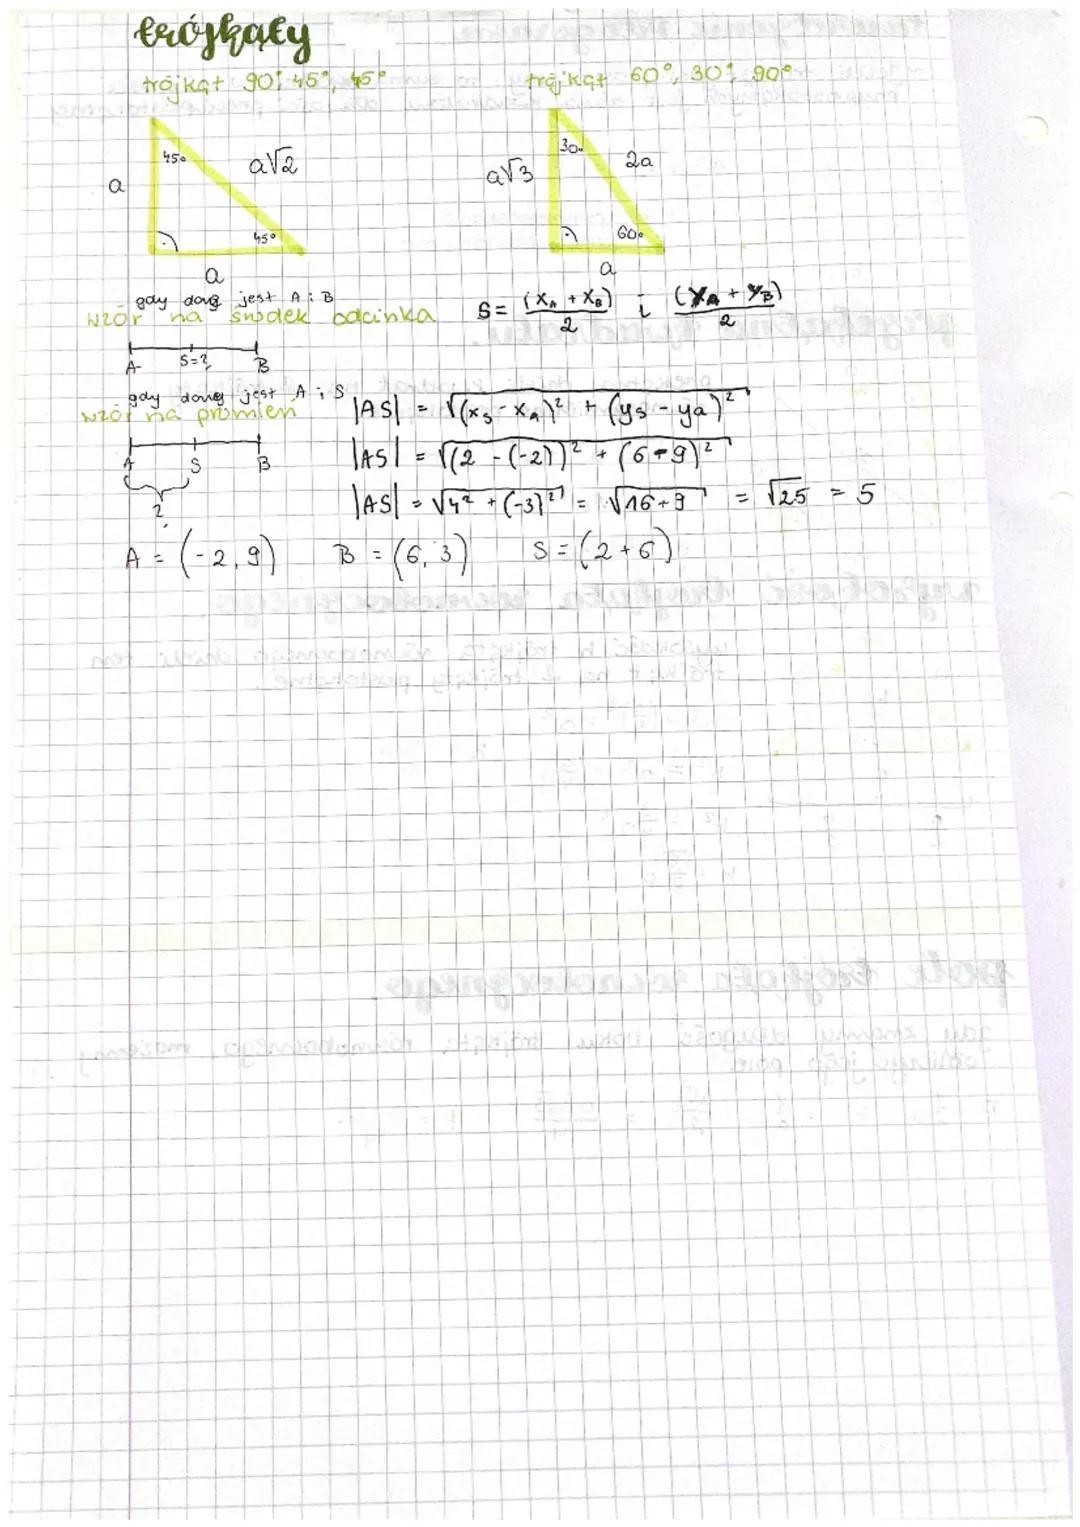 trójkąty
trójkąt 90°, 45°, 45°
trójkąt 60°, 30°, 90°
45°
a√2
a
45°
a
30°
2a
a√3
60°
a
gdy dang jest A i B
wzór na środek odcinka
S = (x_A + x_B)/2 i (y_A + y_B)/2
A S=? B
gdy dang jest A i S
wzór na promień
|AS| = √((x_s - x_A)² + (y_s - y_a)²)
A S B
?
|AS| = √((2 - (-2))² + (6-9)²)
|AS| = √(4² + (-3)²) = √(16+9) = √25 = 5
A = (-2, 9) B = (6, 3) S = (2+6)